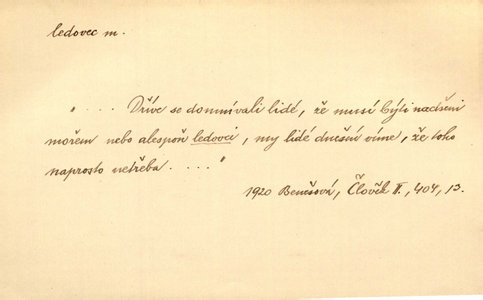 ledovec m.
„ . . . . Dříve se domnívali lidé, že musí býti nadšeni
mořem nebo alespoň ledovci, my lidé dnešní víme, že toho
naprosto netřeba . . . . "
1920 Benešová, Člověk II., 404, 13.